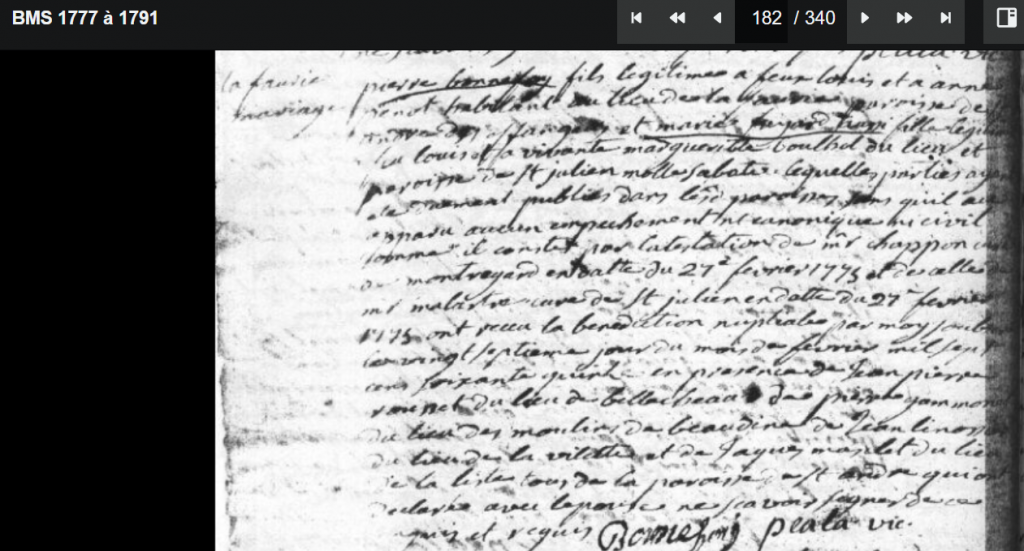 BMS 1777 à 1791
182 / 340
la faurie
mariage
pierre bonnefoy fils legitime a feux louis et a anne
habitant du lieu de la faurie paroisse de
et marie fille legitime
a louis et a vivante marguerithe du lieu et
paroisse de st julien mollesabate lequelles parties ayant
eté dument publies dans lesd paroisses sans quil aie
apparu aucun empechement ni canonique ni civil
comme il conste par latestation de mr chappon curé
de montregard en datte du 27e fevrier 1775 et de celle de
mr curé de st julien en datte du 27e fevrier
1775 ont receu la benediction nuptiale par moy
ce vingt septieme jour du mois de fevrier mil sept
cens soixante quinze en presence de jean pierre
rousset du lieu de de pierre gammond
du lieu des moulins de beaudine de jean linossier
du lieu de la vilette et de jaques du lieu
de la tous de la paroisse de st andre qui ont
declaré avec lepouse ne scavoir signer de ce
enquis et requis Bonnefois vic.